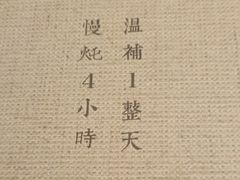 温補1整天
慢炖4小時